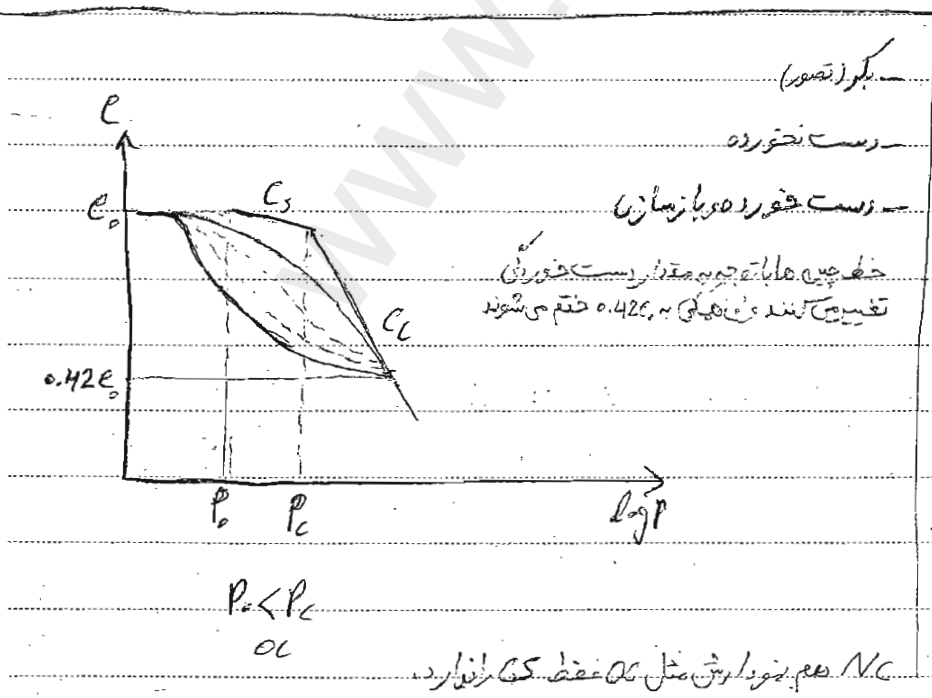 www.
– بکر (تصور)
– دست نخورده
– دست خورده و بازسازی
خط چین ها با توجه به مقدار دست خوردگی
تغییر می کنند همگی به 0.42e₀ ختم می شوند
e
e₀
Cs
Cc
0.42e₀
P₀
Pc
log P
P₀ < Pc
OC
NC هم نمودارش مثل OC فقط Cs را ندارد.